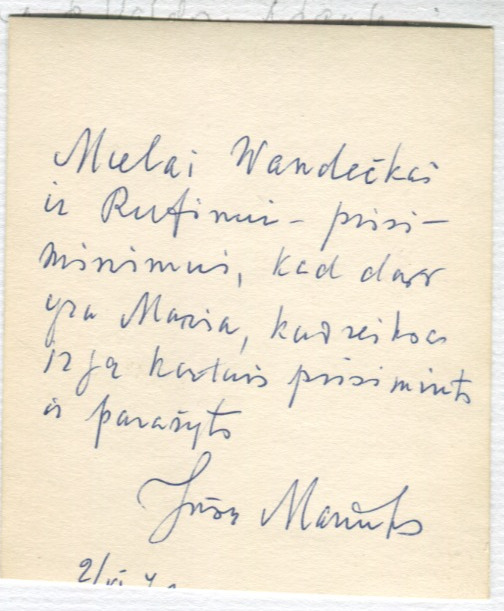 Mielai Wandečkai
ir Rufinui - prisi-
minimui, kad dar
yra Maria, kad reikia
ir ją kartais prisiminti
ir parašyti
Jūsų